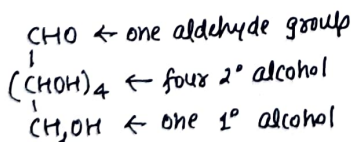 CHO ← one aldehyde group
(CHOH)4 ← four 2° alcohol
CH2OH ← one 1° alcohol